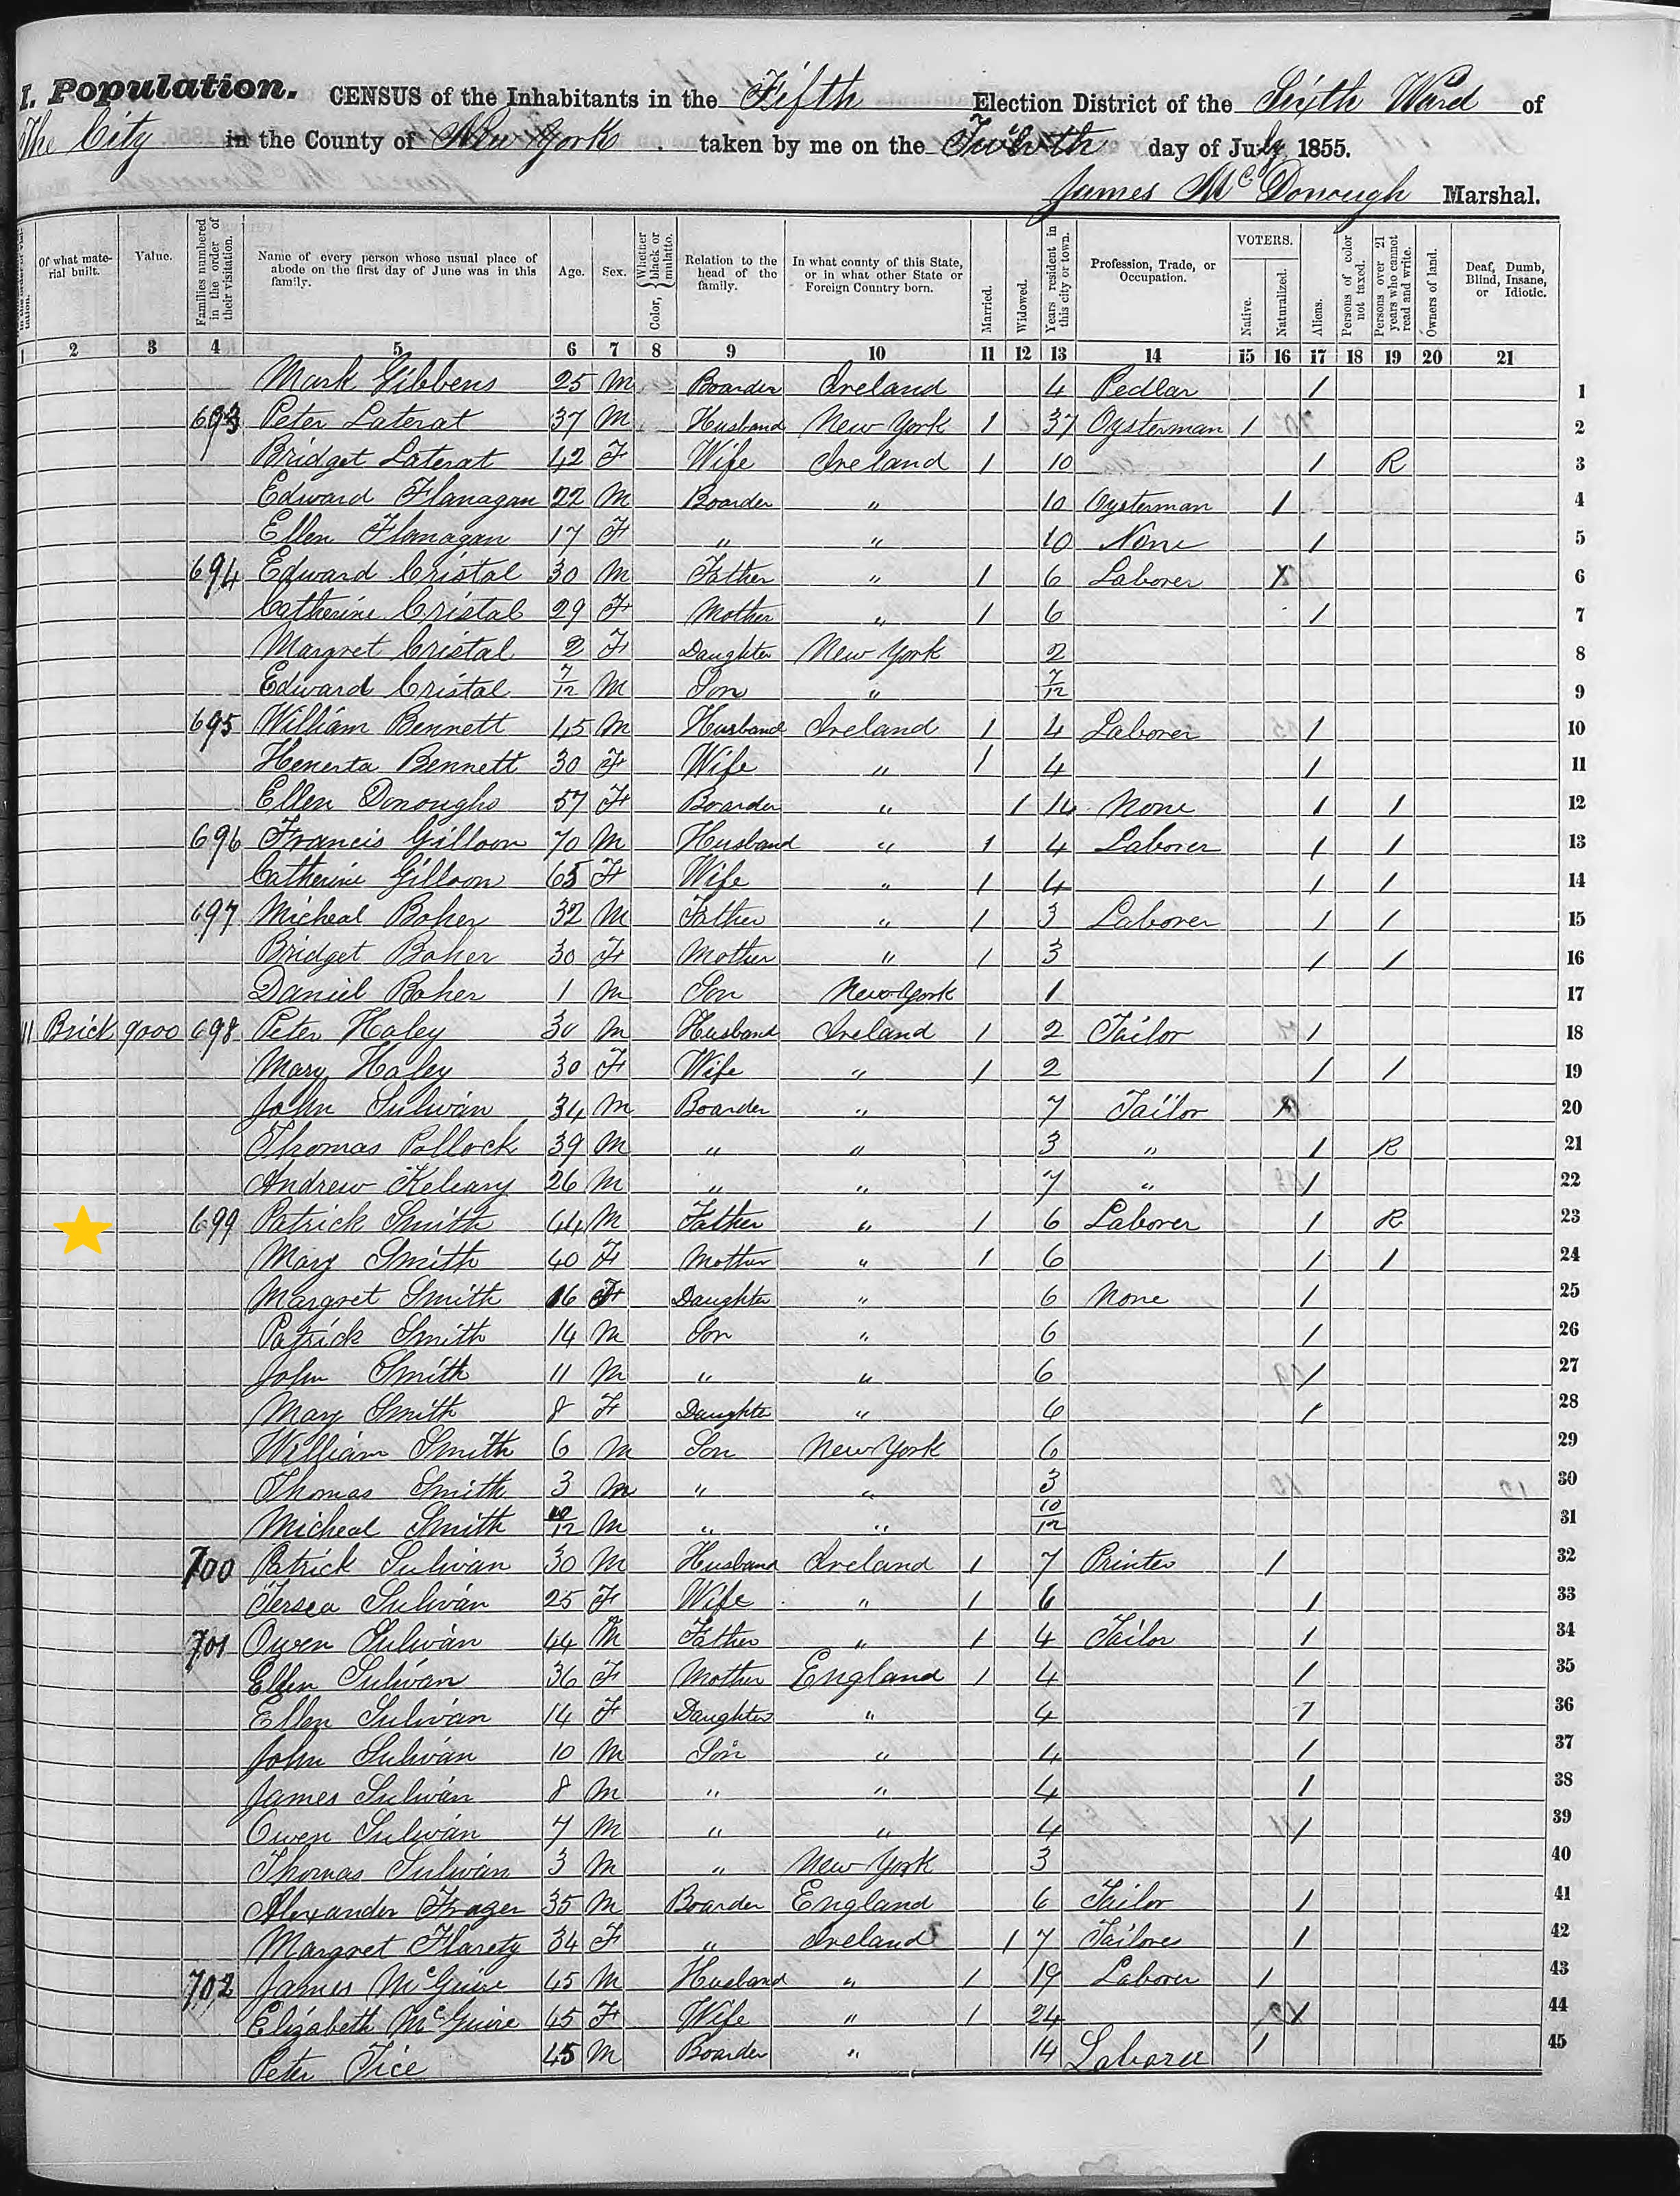 I. Population. CENSUS of the Inhabitants in the Fifth Election District of the Sixth Ward of
The City in the County of New York taken by me on the day of July 1855.
James McDonough Marshal.
Of what material built. Value. Families numbered in the order of their visitation. Name of every person whose usual place of abode on the first day of June was in this family. Age. Sex. Color, { Whether black or mulatto. Relation to the head of the family. In what county of this State, or in what other State or Foreign Country born. Married. Widowed. Years resident in this city or town. Profession, Trade, or Occupation. VOTERS. Native. Naturalized. Aliens. Persons of color not taxed. Persons over 21 years who cannot read and write. Owners of land. Deaf, Dumb, Blind, Insane, or Idiotic.
1 2 3 4 5 6 7 8 9 10 11 12 13 14 15 16 17 18 19 20 21
Mark Gibbens 25 M Boarder Ireland 4 Pedlar 1 1
693 Peter Laterat 37 M Husband New York 1 37 Oysterman 1 2
Bridget Laterat 42 F Wife Ireland 1 10 1 R 3
Edward Flanagan 22 M Boarder " 10 Oysterman 1 4
Ellen Flanagan 17 F " " 10 None 1 5
694 Edward Cristal 30 M Father " 1 6 Laborer X 6
Catherine Cristal 29 F Mother " 1 6 1 7
Margret Cristal 2 F Daughter New York 2 8
Edward Cristal 7/12 M Son " 7/12 9
695 William Bennett 45 M Husband Ireland 1 4 Laborer 1 10
Henerta Bennett 30 F Wife " 1 4 1 11
Ellen Donoughs 57 F Boarder " 1 14 None 1 1 12
696 Francis Gilloon 70 M Husband " 1 4 Laborer 1 1 13
Catherine Gilloon 65 F Wife " 1 4 1 1 14
697 Micheal Boher 32 M Father " 1 3 Laborer 1 1 15
Bridget Boher 30 F Mother " 1 3 1 1 16
Daniel Boher 1 M Son New York 1 17
11 Brick 9000 698 Peter Haley 30 M Husband Ireland 1 2 Tailor 1 18
Mary Haley 30 F Wife " 1 2 1 1 19
John Sulivan 34 M Boarder " 7 Tailor 20
Thomas Pollock 39 M " " 3 " 1 R 21
Andrew Keleary 26 M " " 7 " 1 22
699 Patrick Smith 44 M Father " 1 6 Laborer 1 R 23
Mary Smith 40 F Mother " 1 6 1 1 24
Margret Smith 16 F Daughter " 6 None 1 25
Patrick Smith 14 M Son " 6 1 26
John Smith 11 M " " 6 1 27
Mary Smith 8 F Daughte " 6 1 28
William Smith 6 M Son New York 6 29
Thomas Smith 3 M " " 3 30
Micheal Smith 10/12 M " " 10/12 31
700 Patrick Sulivan 30 M Husband Ireland 1 7 Printer 1 32
Tersea Sulivan 25 F Wife " 1 6 1 33
701 Owen Sulivan 44 M Father " 1 4 Tailor 1 34
Ellen Sulivan 36 F Mother England 1 4 1 35
Ellen Sulivan 14 F Daughter " 4 1 36
John Sulivan 10 M Son " 4 1 37
James Sulivan 8 M " " 4 1 38
Owen Sulivan 7 M " " 4 1 39
Thomas Sulivan 3 M " New York 3 40
Alexander Frazer 35 M Boarder England 6 Tailor 1 41
Margret Flarety 34 F " Ireland 1 7 Tailore 1 42
702 James McGuire 45 M Husband " 1 19 Laborer 1 43
Elizabeth McGuire 45 F Wife " 1 24 1 44
Peter Tice 45 M Boarder " 14 Laborer 1 45